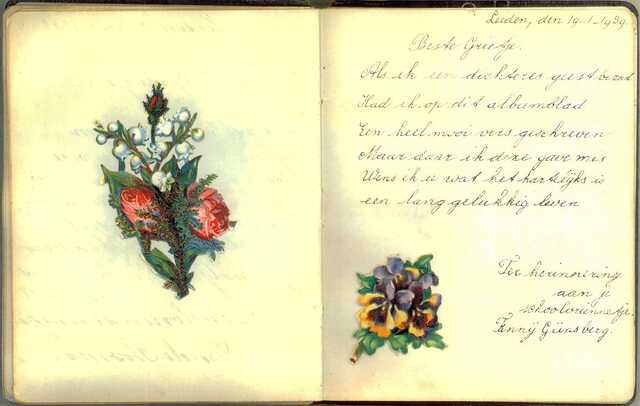 Leiden, den 19-1-1939.
Beste Grietje.
Als ik een dichteres geest bezat
Had ik op dit albumblad
Een heel mooi vers geschreven
Maar daar ik deze gave mis
Wens ik u wat het hartelijks is
een lang gelukkig leven
Ter herinnering
aan je
schoolvriennetje.
Fanny Günsberg.